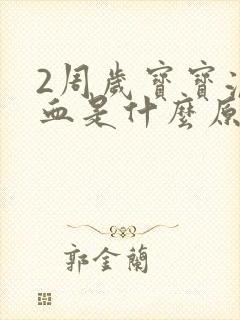 2周歲寶寶流
血是什麼原
郭金蘭